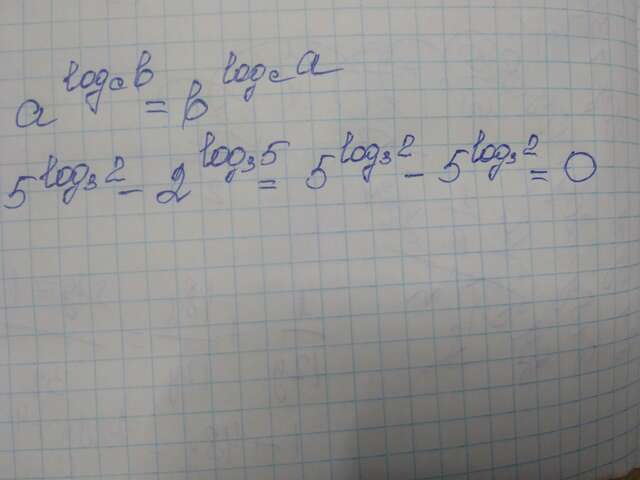 a^{log_c b} = b^{log_c a}
5^{log_3 2} - 2^{log_3 5} = 5^{log_3 2} - 5^{log_3 2} = 0